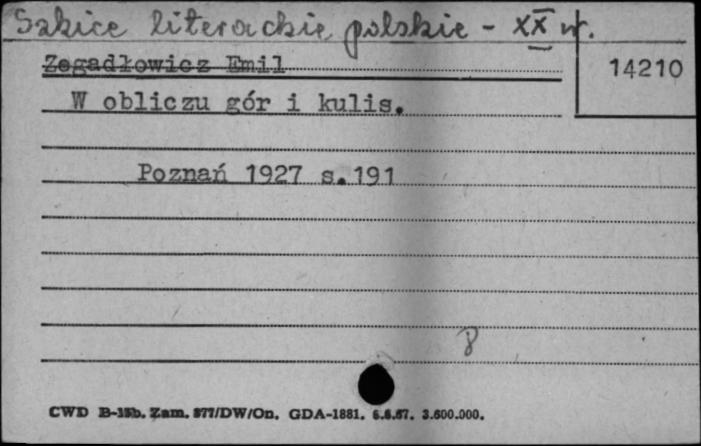 Szkice literackie polskie - XX w.
Zegadłowicz Emil
14210
W obliczu gór i kulis.
Poznań 1927 s.191
8
CWD B-15b. Zam. 877/DW/On. GDA-1881. 6.6.67. 3.600.000.